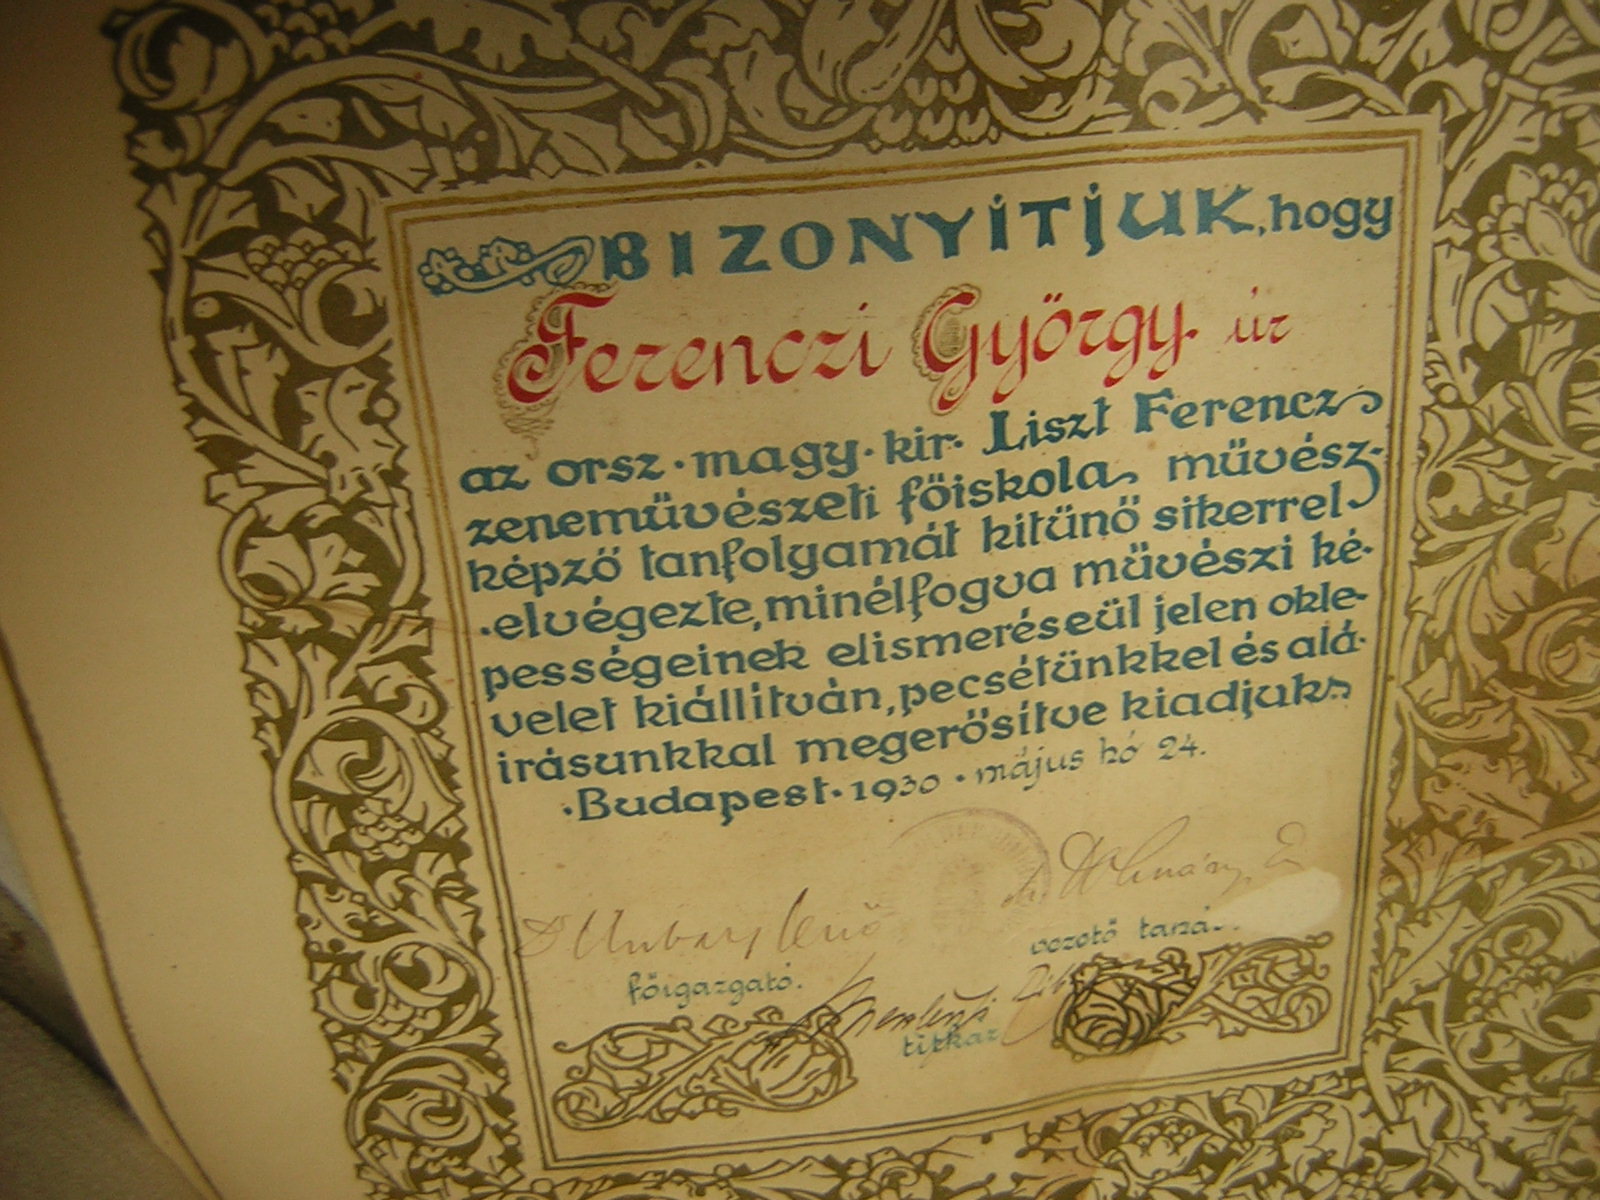 BIZONYÍTJUK, hogy
Ferenczi György úr
az orsz. magy. kir. Liszt Ferencz
zeneművészeti főiskola művész-
képző tanfolyamát kitünő sikerrel
elvégezte, minélfogva művészi ké-
pességeinek elismeréseül jelen okle-
velet kiállítván, pecsétünkkel és alá-
írásunkkal megerősítve kiadjuk
Budapest. 1930. május hó 24.
Dr Hubay Jenő
főigazgató.
Dr. Dohnányi E
vezető taná
titkár